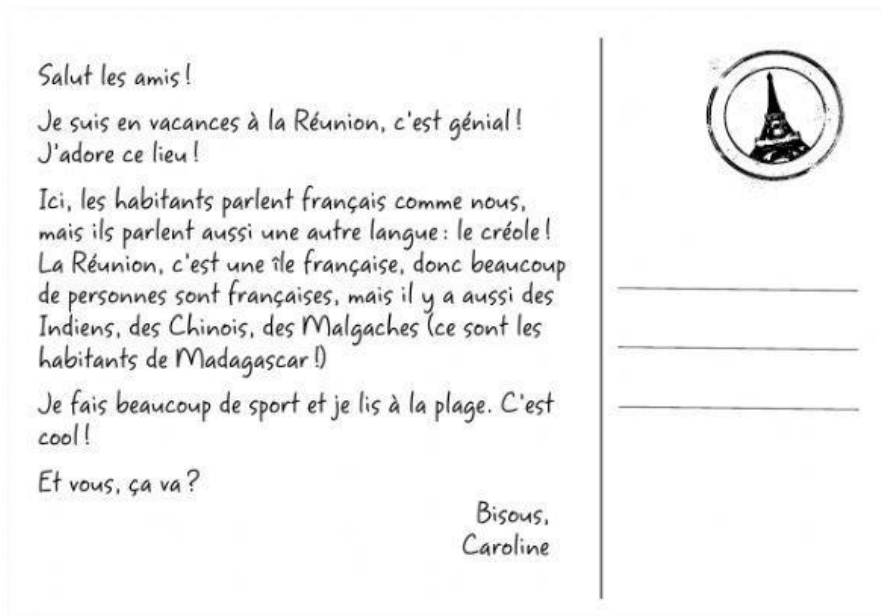 Salut les amis !
Je suis en vacances à la Réunion, c'est génial !
J'adore ce lieu !
Ici, les habitants parlent français comme nous,
mais ils parlent aussi une autre langue : le créole !
La Réunion, c'est une île française, donc beaucoup
de personnes sont françaises, mais il y a aussi des
Indiens, des Chinois, des Malgaches (ce sont les
habitants de Madagascar !)
Je fais beaucoup de sport et je lis à la plage. C'est
cool !
Et vous, ça va ?
Bisous,
Caroline